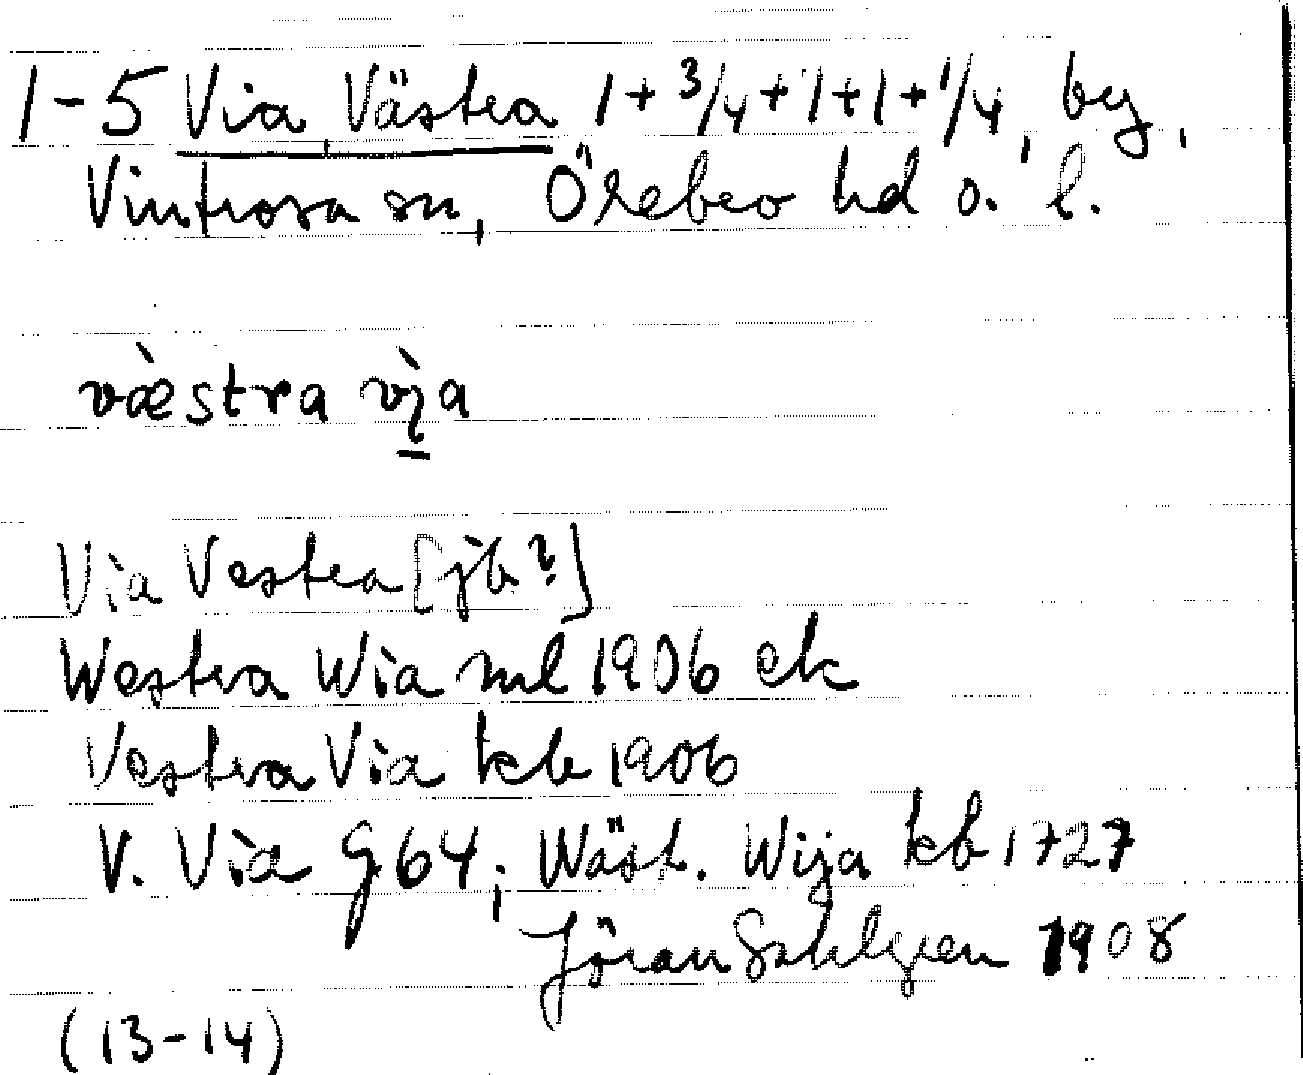 1-5 Via Västra 1+3/4+1+1+1/4, by,
Vintrosa sn, Örebro hd o. l.
væ̀stra vı̀̄a
Via Vestra [jb?]
Westra Wia ml 1906 ek
Vestra Via kb 1906
V. Via G64; Wäst. Wija kb 1727
Jöran Sahlgren 1908
(13-14)